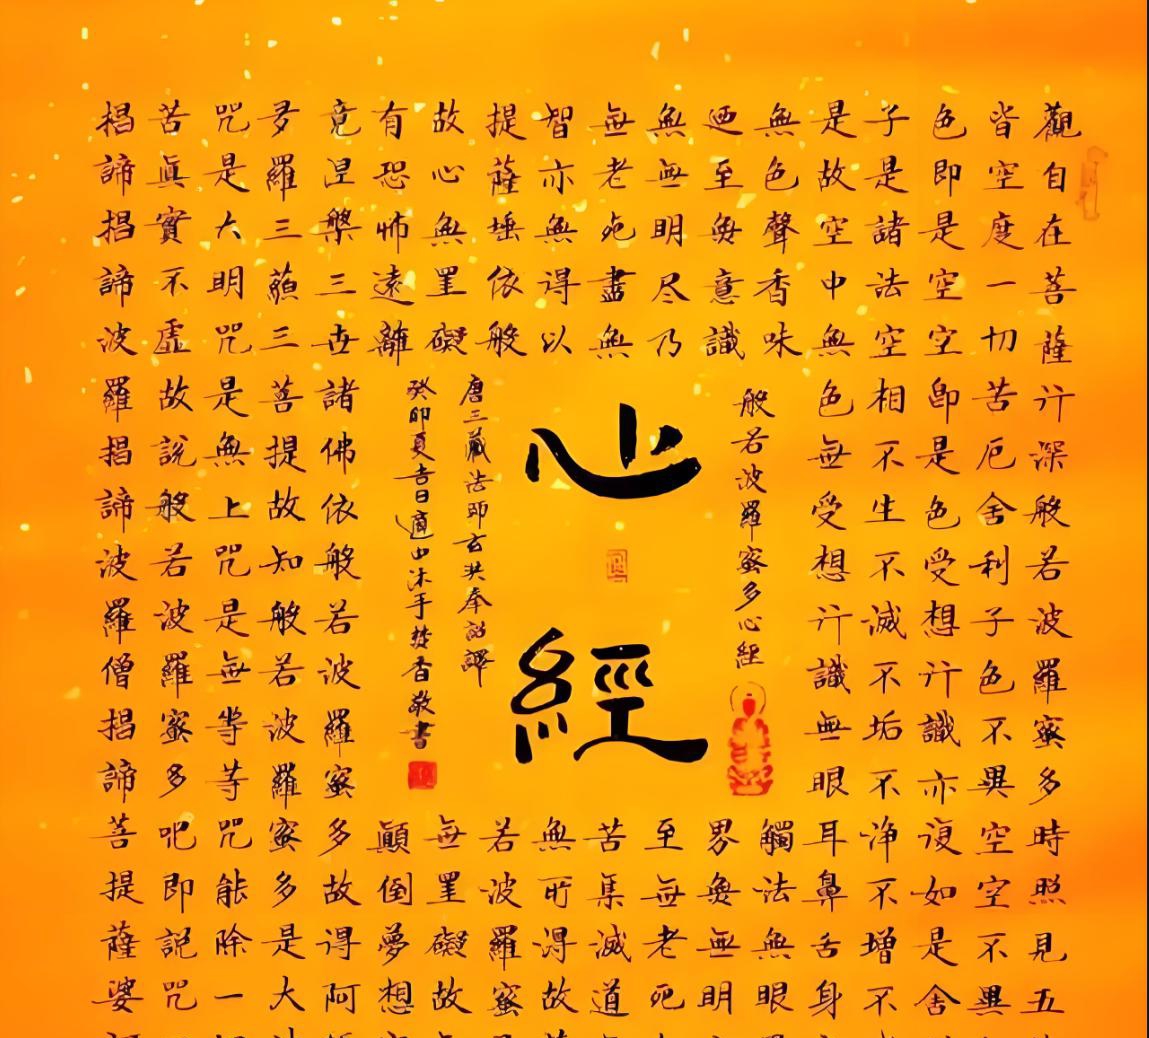 觀自在菩薩行深般若波羅蜜多時照見五
皆空度一切苦厄舍利子色不異空空不異
色即是空空即是色受想行識亦復如是舍
子是諸法空相不生不滅不垢不净不增不
是故空中無色無受想行識無眼耳鼻舌身
無色聲香味觸法無眼
廼至無意識界無無明
無無明尽乃至無老死
無老死盡無苦集滅道
智亦無得以無所得故
提薩埵依般若波羅蜜
故心無罣礙無罣礙故
有恐怖遠離顛倒夢想
竟涅槃三世諸佛依般若波羅蜜多故得阿
多羅三藐三菩提故知般若波羅蜜多是大
咒是大明咒是無上咒是無等等咒能除一
苦真實不虛故說般若波羅蜜多咒即說咒
揭諦揭諦波羅揭諦波羅僧揭諦菩提薩婆
般若波羅蜜多心經
心經
唐三藏法師玄奘奉詔譯
癸卯夏吉日適中沐手焚香敬書